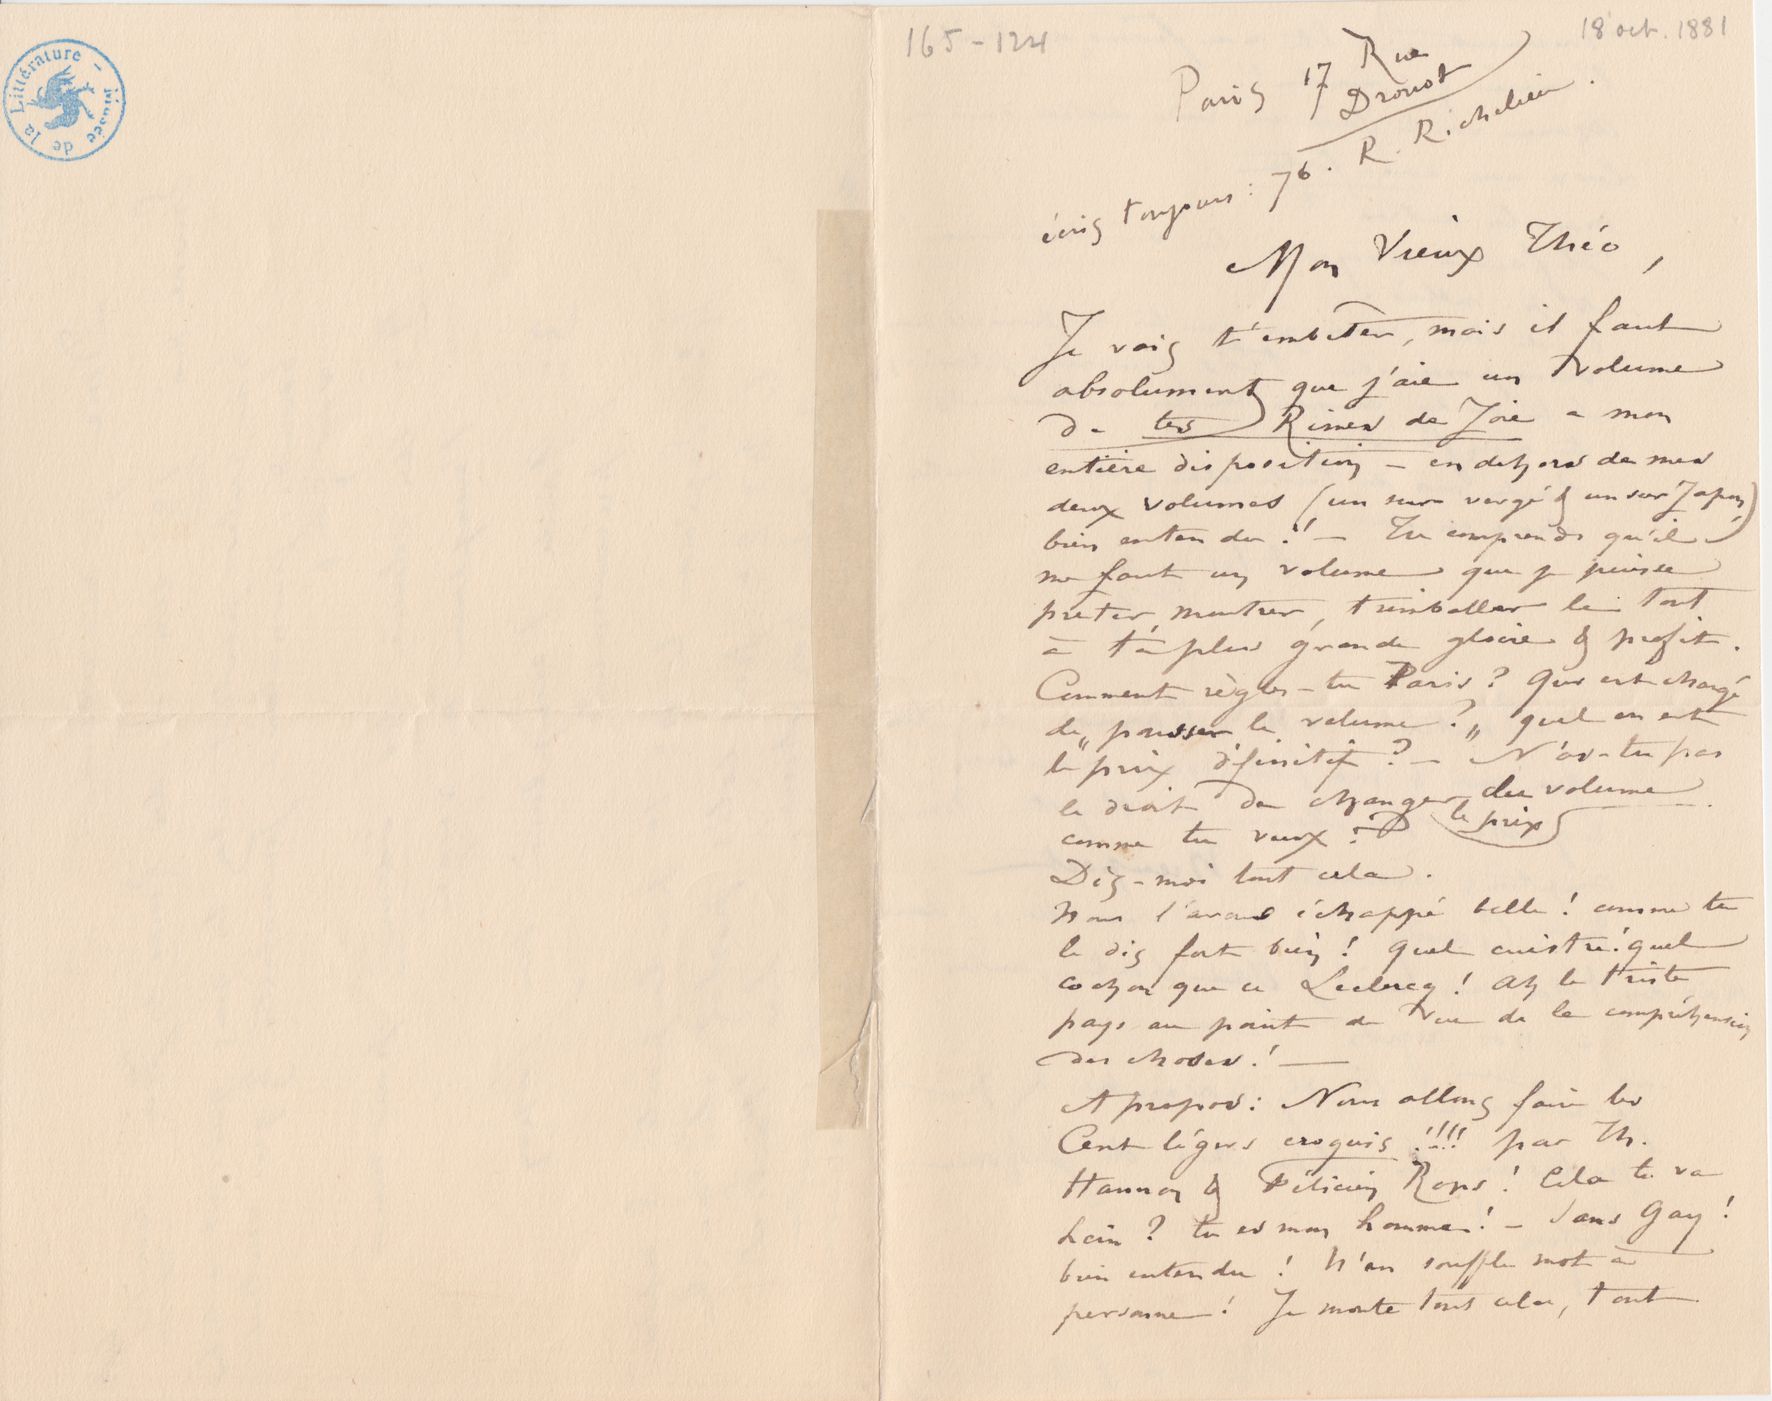 Musée de la Littérature
165-124
18 oct. 1881
Paris 17 Rue Drouot
écris toujours : 76. R. Richelieu.
Mon Vieux Théo,
Je vais t'embêter, mais il faut
absolument que j'aie un volume
de tes Rimes de Joie à mon
entière disposition – en dehors de mes
deux volumes (un sur vergé & un sur Japon)
bien entendu ! – Tu comprends qu'il
me faut un volume que je puisse
prêter, montrer, trimballer le tout
à ta plus grande gloire & profit.
Comment règles-tu Paris ? Qui est chargé
de „pousser le volume ?„ quel en est
le prix définitif ? – N'as-tu pas
le droit de changer le prix du volume
comme tu veux ?
Dis-moi tout cela.
Nous l'avons échappé belle ! comme tu
le dis fort bien ! Quel cuistre ! quel
cochon que ce Leclercq ! Ah le triste
pays au point de vue de la compréhension
des choses ! —
A propos : Nous allons faire les
Cent légers croquis !!!! par Th.
Hannon & Félicien Rops ! Cela te va
hein ? tu es mon homme ! – Sans Gay !
bien entendu ! N'en souffle mot à
personne ! Je monte tout cela, tout